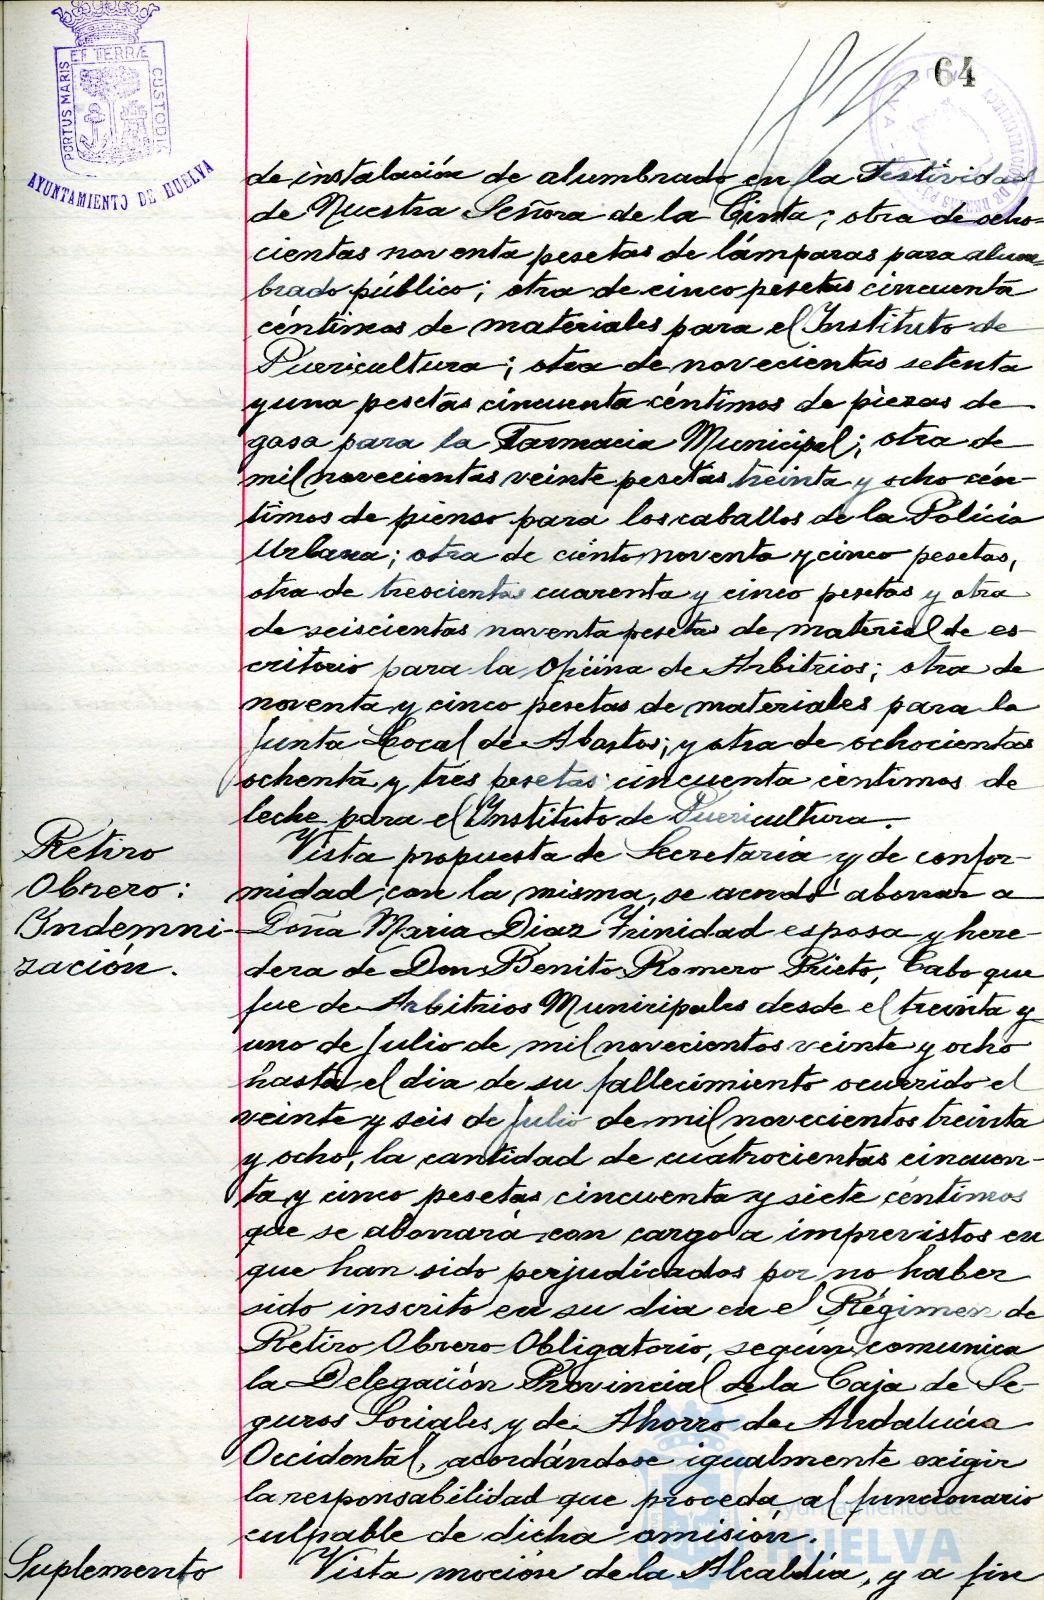 64
PORTUS MARIS ET TERRÆ CUSTODIA
AYUNTAMIENTO DE HUELVA
de instalación de alumbrado en la Festividad
de Nuestra Señora de la Cinta; otra de ocho-
cientas noventa pesetas de lámparas para alum-
brado público; otra de cinco pesetas cincuenta
céntimos de materiales para el Instituto de
Puericultura; otra de novecientas setenta
y una pesetas cincuenta céntimos de piezas de
gasa para la Farmacia Municipal; otra de
mil novecientas veinte pesetas treinta y ocho cén-
timos de pienso para los caballos de la Policia
Urbana; otra de ciento noventa y cinco pesetas,
otra de trescientas cuarenta y cinco pesetas y otra
de seiscientas noventa pesetas de material de es-
critorio para la Oficina de Arbitrios; otra de
noventa y cinco pesetas de materiales para la
Junta Local de Abastos; y otra de ochocientas
ochenta y tres pesetas cincuenta céntimos de
leche para el Instituto de Puericultura.
Retiro
Obrero:
Indemni-
zación.
Vista propuesta de Secretaria y de confor-
midad con la misma, se acordó abonar a
Doña Maria Diaz Trinidad esposa y here-
dera de Don Benito Romero Prieto, Cabo que
fue de Arbitrios Municipales desde el treinta y
uno de Julio de mil novecientos veinte y ocho
hasta el dia de su fallecimiento ocurrido el
veinte y seis de Julio de mil novecientos treinta
y ocho, la cantidad de cuatrocientas cincuen-
ta y cinco pesetas cincuenta y siete céntimos
que se abonará con cargo a imprevistos en
que han sido perjudicados por no haber
sido inscrito en su dia en el Régimen de
Retiro Obrero Obligatorio, según comunica
la Delegación Provincial de la Caja de Se-
guros Sociales y de Ahorro de Andalucia
Occidental, acordándose igualmente exigir
la responsabilidad que proceda al funcionario
culpable de dicha omisión.
Suplemento
Vista moción de la Alcaldía, y a fin
Ayuntamiento de
HUELVA